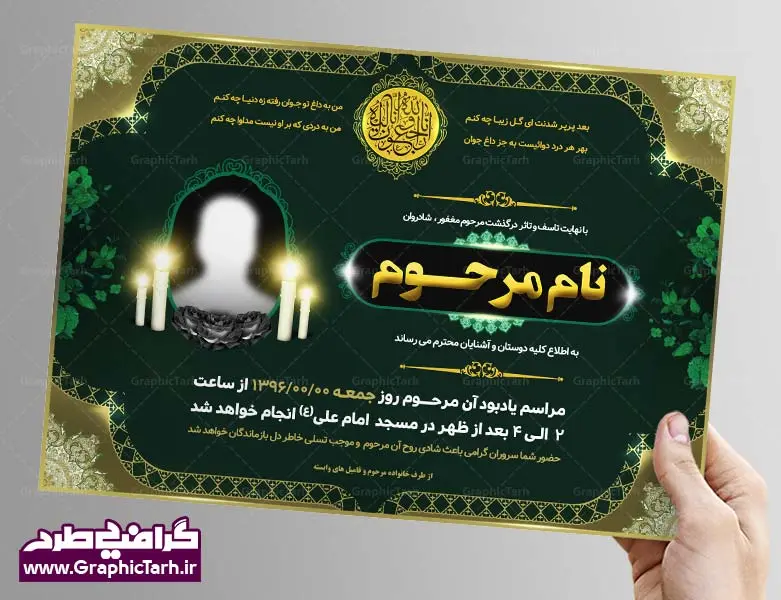 بعد پرپر شدنت ای گل زیبا چه کنم
من به داغ تو جوان رفته زه دنیا چه کنم
بهر هر درد دوائیست به جز داغ جوان
من به دردی که بر او نیست مداوا چه کنم
انا لله و انا الیه راجعون
با نهایت تاسف و تاثر درگذشت مرحوم مغفور ، شادروان
نام مرحوم
به اطلاع کلیه دوستان و آشنایان محترم می رساند
مراسم یادبود آن مرحوم روز جمعه ۱۳۹۶/۰۰/۰۰ از ساعت
۲ الی ۴ بعد از ظهر در مسجد امام علی(ع) انجام خواهد شد
حضور شما سروران گرامی باعث شادی روح آن مرحوم و موجب تسلی خاطر دل بازماندگان خواهد شد
از طرف خانواده مرحوم و فامیل های وابسته
گرافیک طرح
www.GraphicTarh.ir
GraphicTarh